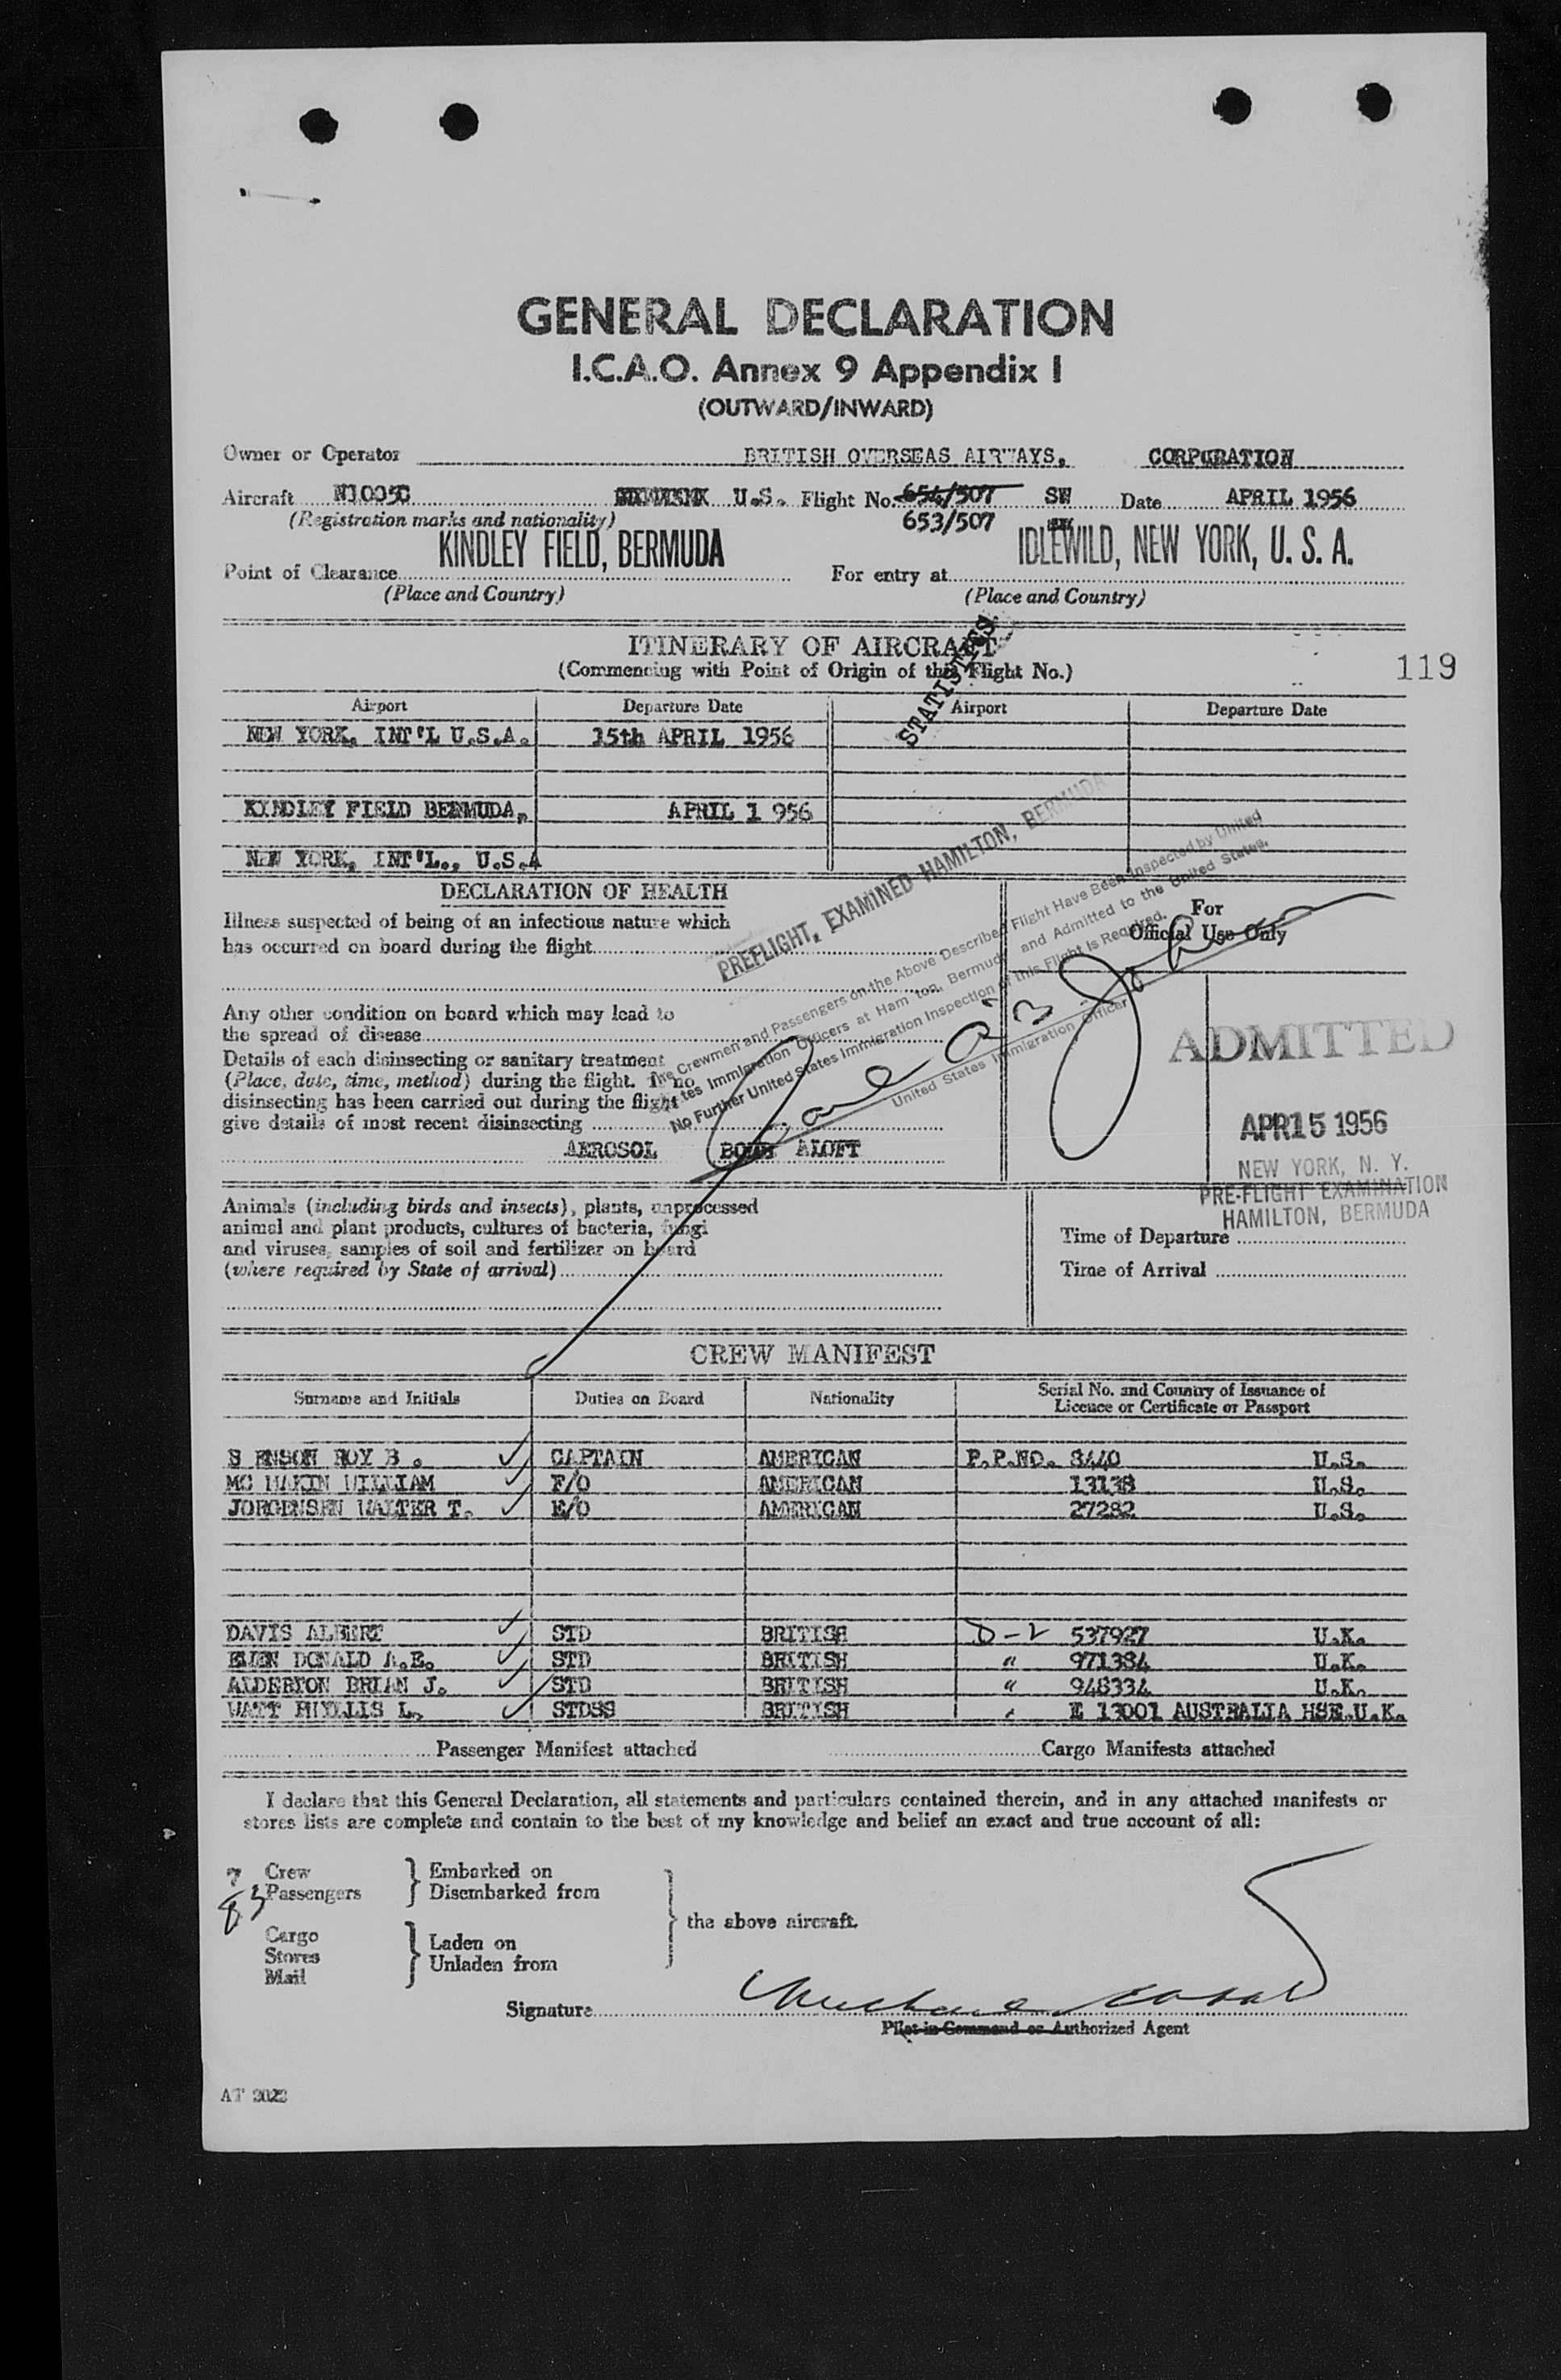 GENERAL DECLARATION
I.C.A.O. Annex 9 Appendix I
(OUTWARD/INWARD)
Owner or Operator BRITISH OVERSEAS AIRWAYS, CORPORATION
Aircraft N1005C U.S. Flight No. 654/507 SW Date APRIL 1956
(Registration marks and nationality) 653/507
Point of Clearance KINDLEY FIELD, BERMUDA For entry at IDLEWILD, NEW YORK, U. S. A.
(Place and Country) (Place and Country)
ITINERARY OF AIRCRAFT
(Commencing with Point of Origin of this Flight No.)
119
STATISTICS
Airport Departure Date Airport Departure Date
NEW YORK, INT'L U.S.A. 15th APRIL 1956
KINDLEY FIELD BERMUDA, APRIL 1 956
NEW YORK, INT'L., U.S.A
DECLARATION OF HEALTH
Illness suspected of being of an infectious nature which
has occurred on board during the flight
Any other condition on board which may lead to
the spread of disease
Details of each disinsecting or sanitary treatment
(Place, date, time, method) during the flight. If no
disinsecting has been carried out during the flight
give details of most recent disinsecting
AEROSOL BOMB ALOFT
PREFLIGHT, EXAMINED HAMILTON, BERMUDA
The Crewmen and Passengers on the Above Described Flight Have Been Inspected by United
States Immigration Officers at Hamilton, Bermuda and Admitted to the United States.
No Further United States Immigration Inspection of this Flight Is Required.
United States Immigration Officer
For
Official Use Only
ADMITTED
APR 15 1956
NEW YORK, N. Y.
PRE-FLIGHT EXAMINATION
HAMILTON, BERMUDA
Animals (including birds and insects), plants, unprocessed
animal and plant products, cultures of bacteria, fungi
and viruses, samples of soil and fertilizer on board
(where required by State of arrival)
Time of Departure
Time of Arrival
CREW MANIFEST
Surname and Initials Duties on Board Nationality Serial No. and Country of Issuance of
Licence or Certificate or Passport
S ENSON ROY B . CAPTAIN AMERICAN P.P.NO. 8440 U.S.
MC MAKIN WILLIAM F/O AMERICAN 13138 U.S.
JORGENSEN WALTER T. E/O AMERICAN 27282 U.S.
DAVIS ALBERT STD BRITISH D-2 537927 U.K.
DONALD A.E. STD BRITISH " 971384 U.K.
ALDERTON BRIAN J. STD BRITISH " 948334 U.K.
WATT PHYLLIS L. STDSS BRITISH " E 13001 AUSTRALIA HSE.U.K.
Passenger Manifest attached Cargo Manifests attached
I declare that this General Declaration, all statements and particulars contained therein, and in any attached manifests or
stores lists are complete and contain to the best of my knowledge and belief an exact and true account of all:
7 Crew } Embarked on
83 Passengers } Disembarked from
the above aircraft.
Cargo
Stores } Laden on
Mail } Unladen from
Signature
Pilot in Command or Authorized Agent
AT 2022